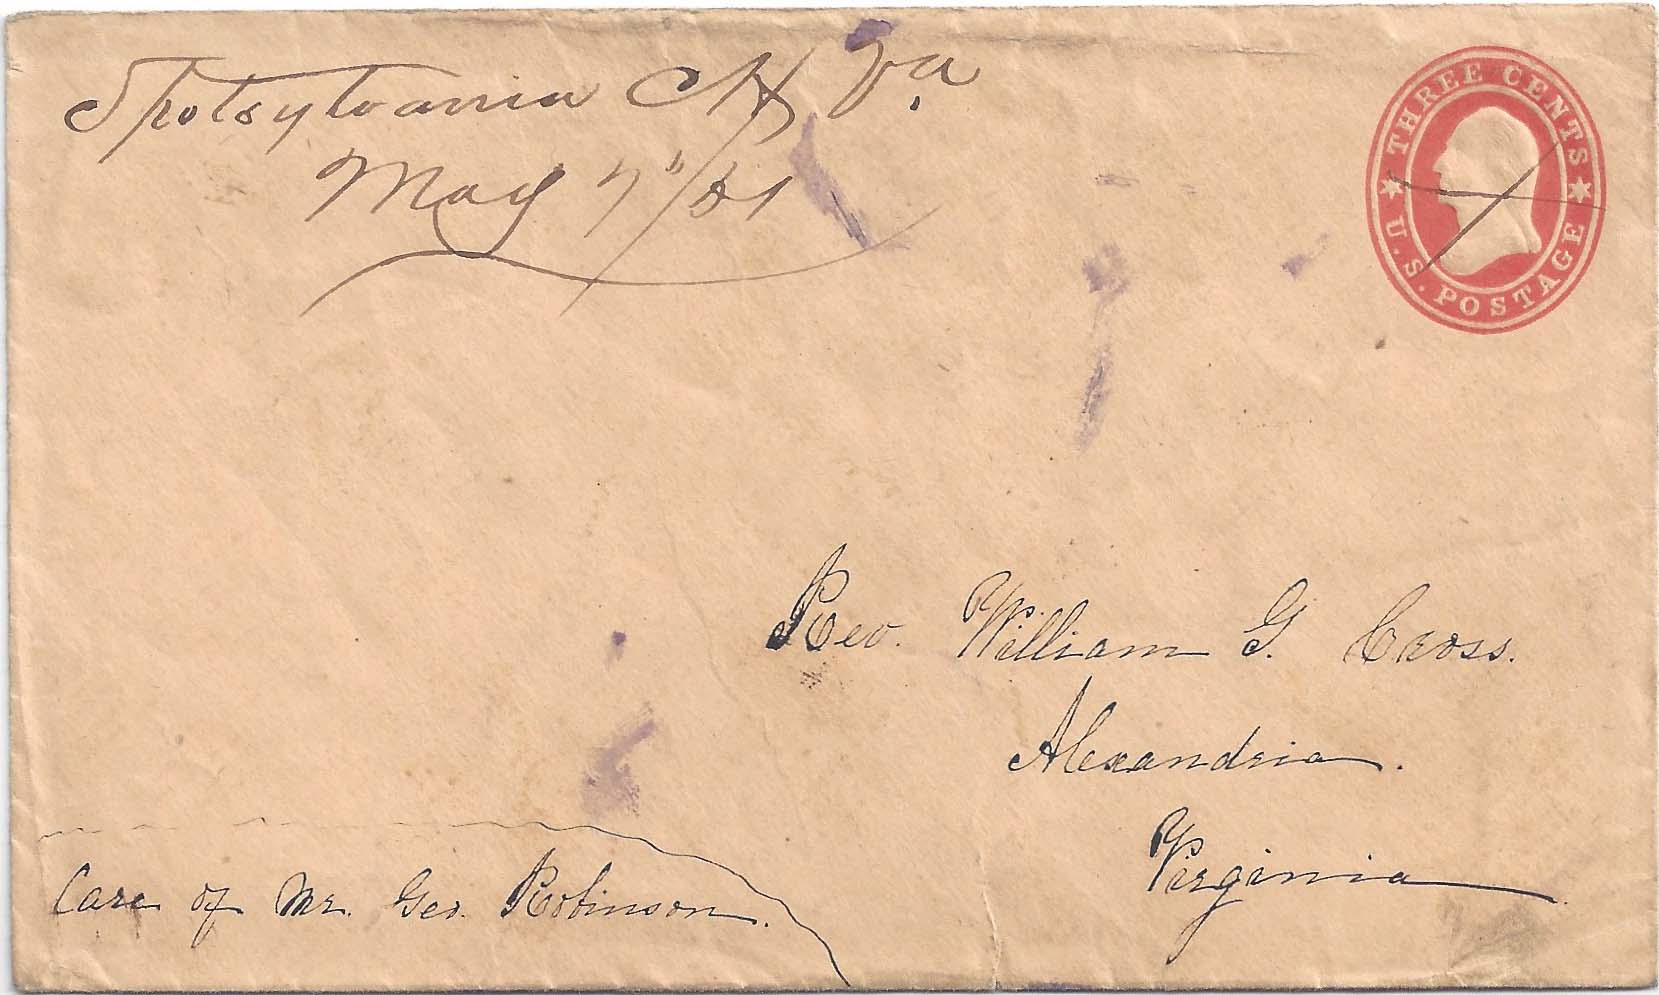 Spotsylvania CH Va.
May 7"/61
THREE CENTS
U.S. POSTAGE
Rev. William G. Cross.
Alexandria.
Virginia.
Care of Mr. Geo. Robinson.